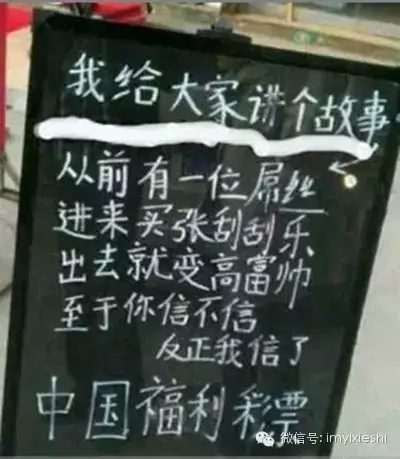 我给大家讲个故事
从前有一位屌丝
进来买张刮刮乐
出去就变高富帅
至于你信不信
反正我信了
中国福利彩票
微信号: imyixieshi